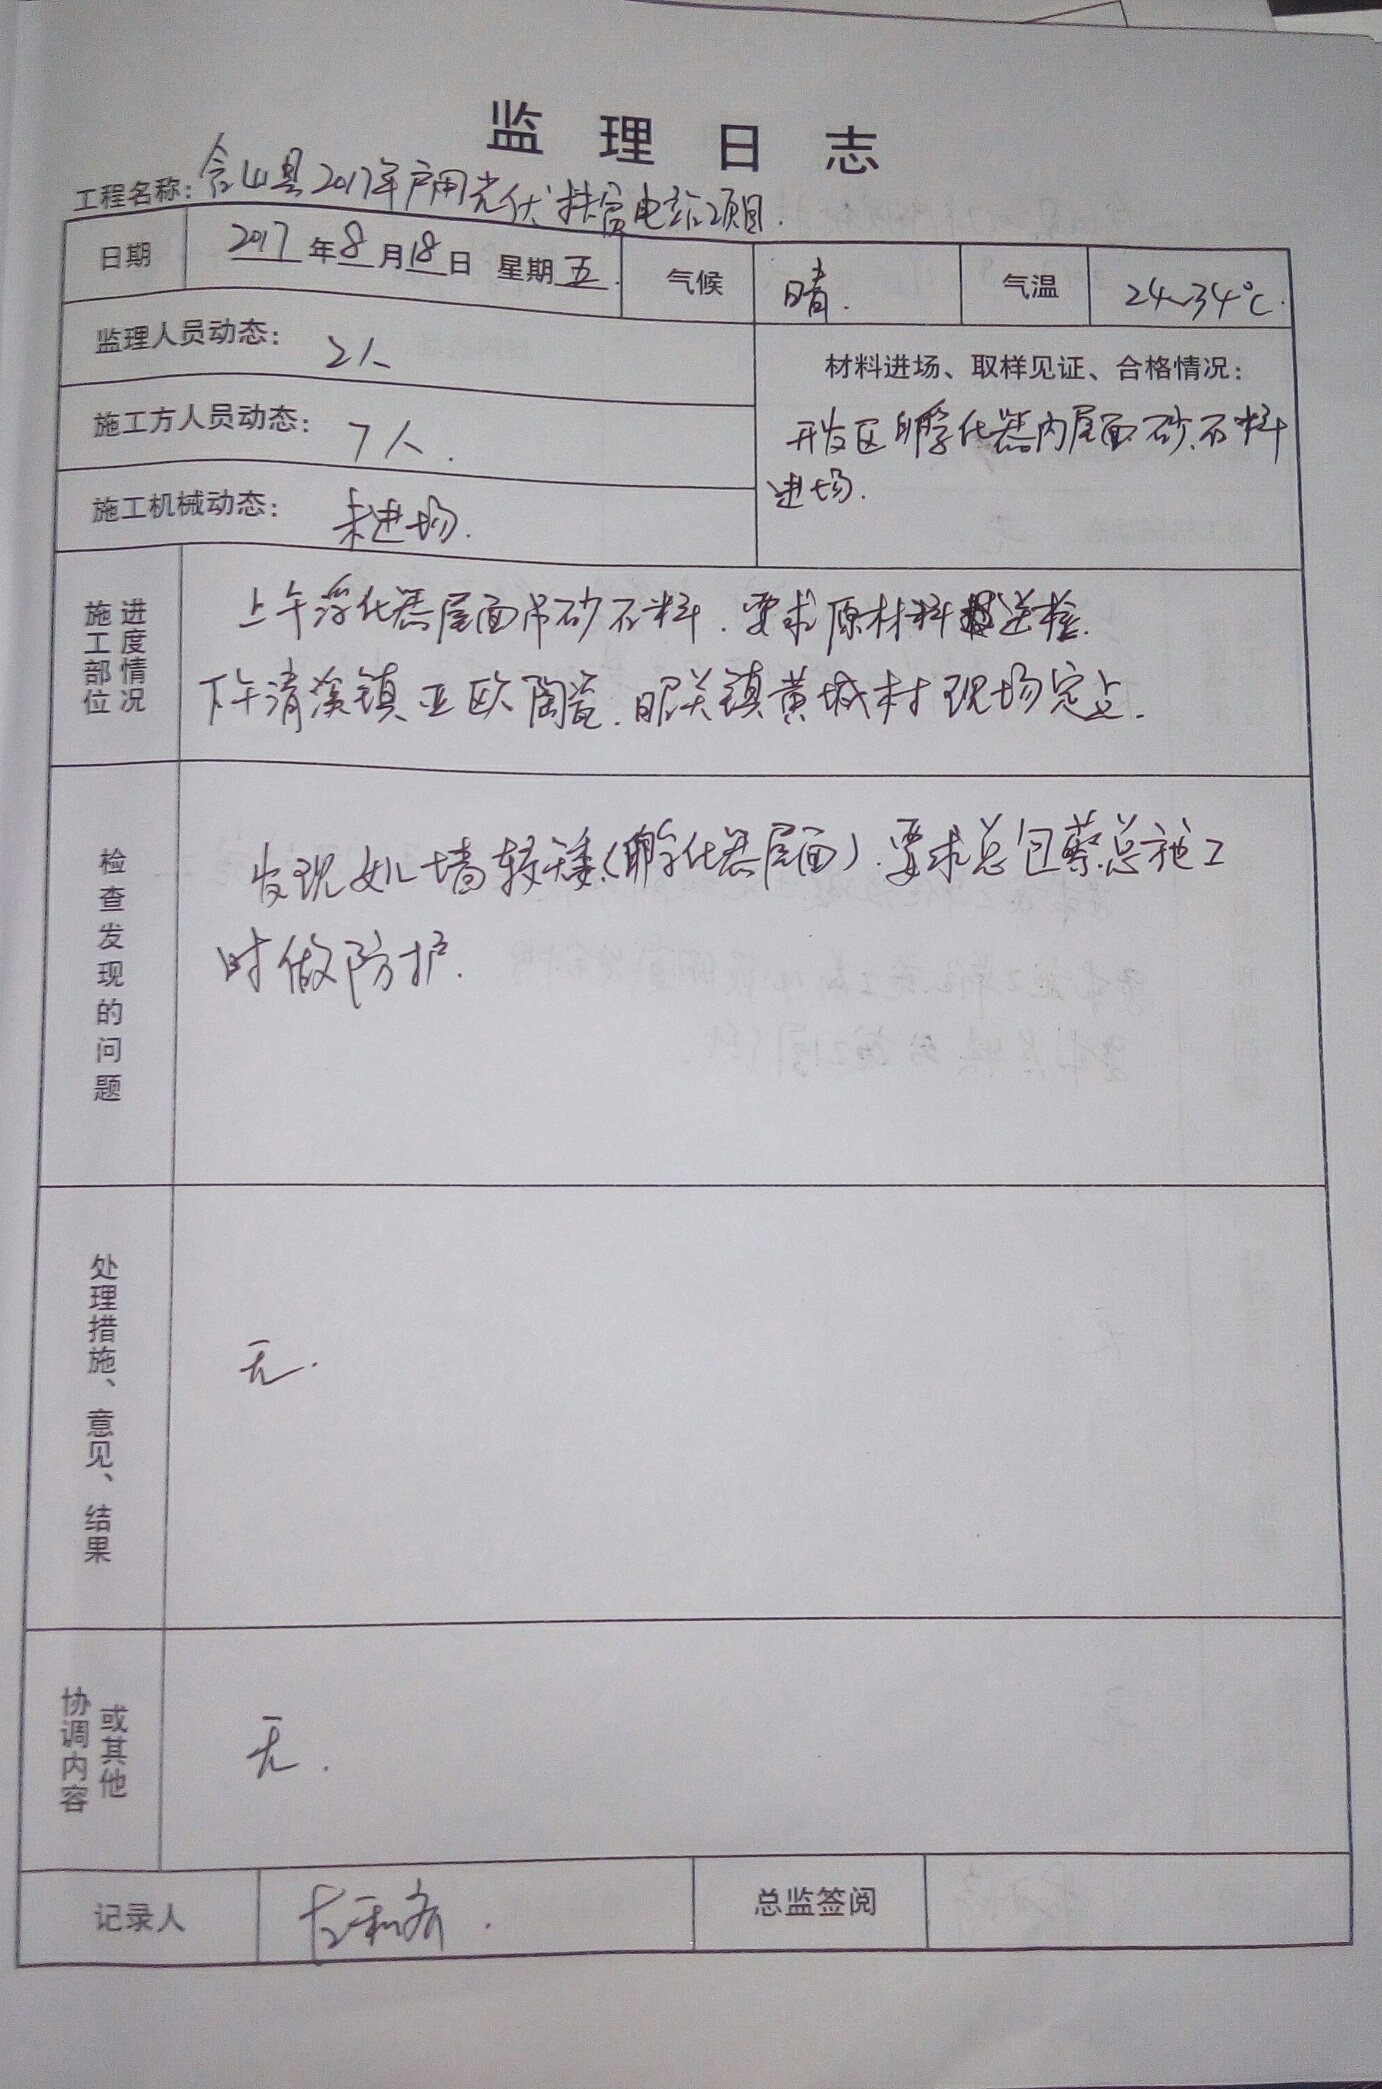 监理日志
工程名称:含山县2017年户用光伏扶贫电站项目.
日期 2017年8月18日 星期五. 气候 晴. 气温 24~34℃.
监理人员动态: 2人
材料进场、取样见证、合格情况:
施工方人员动态: 7人.
开发区孵化器内屋面砂、石料
进场.
施工机械动态: 未进场.
施工部位进度情况
上午浮化器屋面吊砂石料.要求原材料送检.
下午清溪镇亚欧陶瓷.昭关镇黄城村现场定点.
检查发现的问题
发现女儿墙较矮(孵化器屋面).要求总包蔡总施工
时做防护.
处理措施、意见、结果
无.
协调内容或其他
无.
记录人 总监签阅